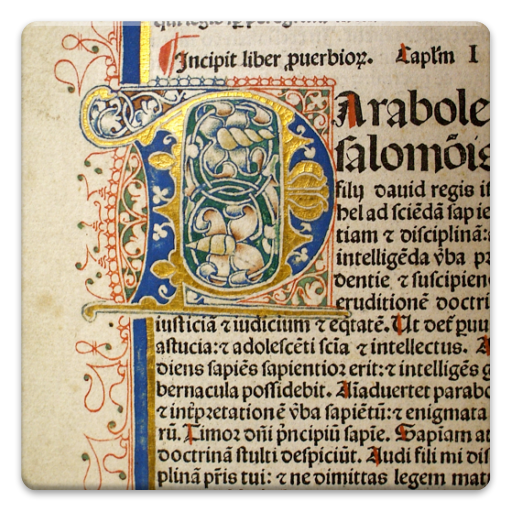 Incipit liber ꝓuerbioꝝ. Capl'm I
Parabole
salomõis
filij dauid regis
hel ad sciẽdã sapie
tiam ⁊ disciplinã:
intelligẽda v̓ba
dentie ⁊ suscipien
eruditionẽ doctri
iusticiã ⁊ iudicium ⁊ eq̃tatẽ. Ut def̃
astucia: ⁊ adolescẽti sc̃ia ⁊ intellectus.
diens sapiẽs sapientior erit: ⁊ intelligẽs g
bernacula possidebit. Aĩaduertet parabo
⁊ int̃pretationẽ v̓ba sapiẽtũ: ⁊ enigmata
rũ. Timor dñi p̃ncipiũ sapĩe. Sapiam at
doctrinã stulti despiciũt. Audi fili mi dis
plinã pr̃is tui: ⁊ ne dimittas legem mat